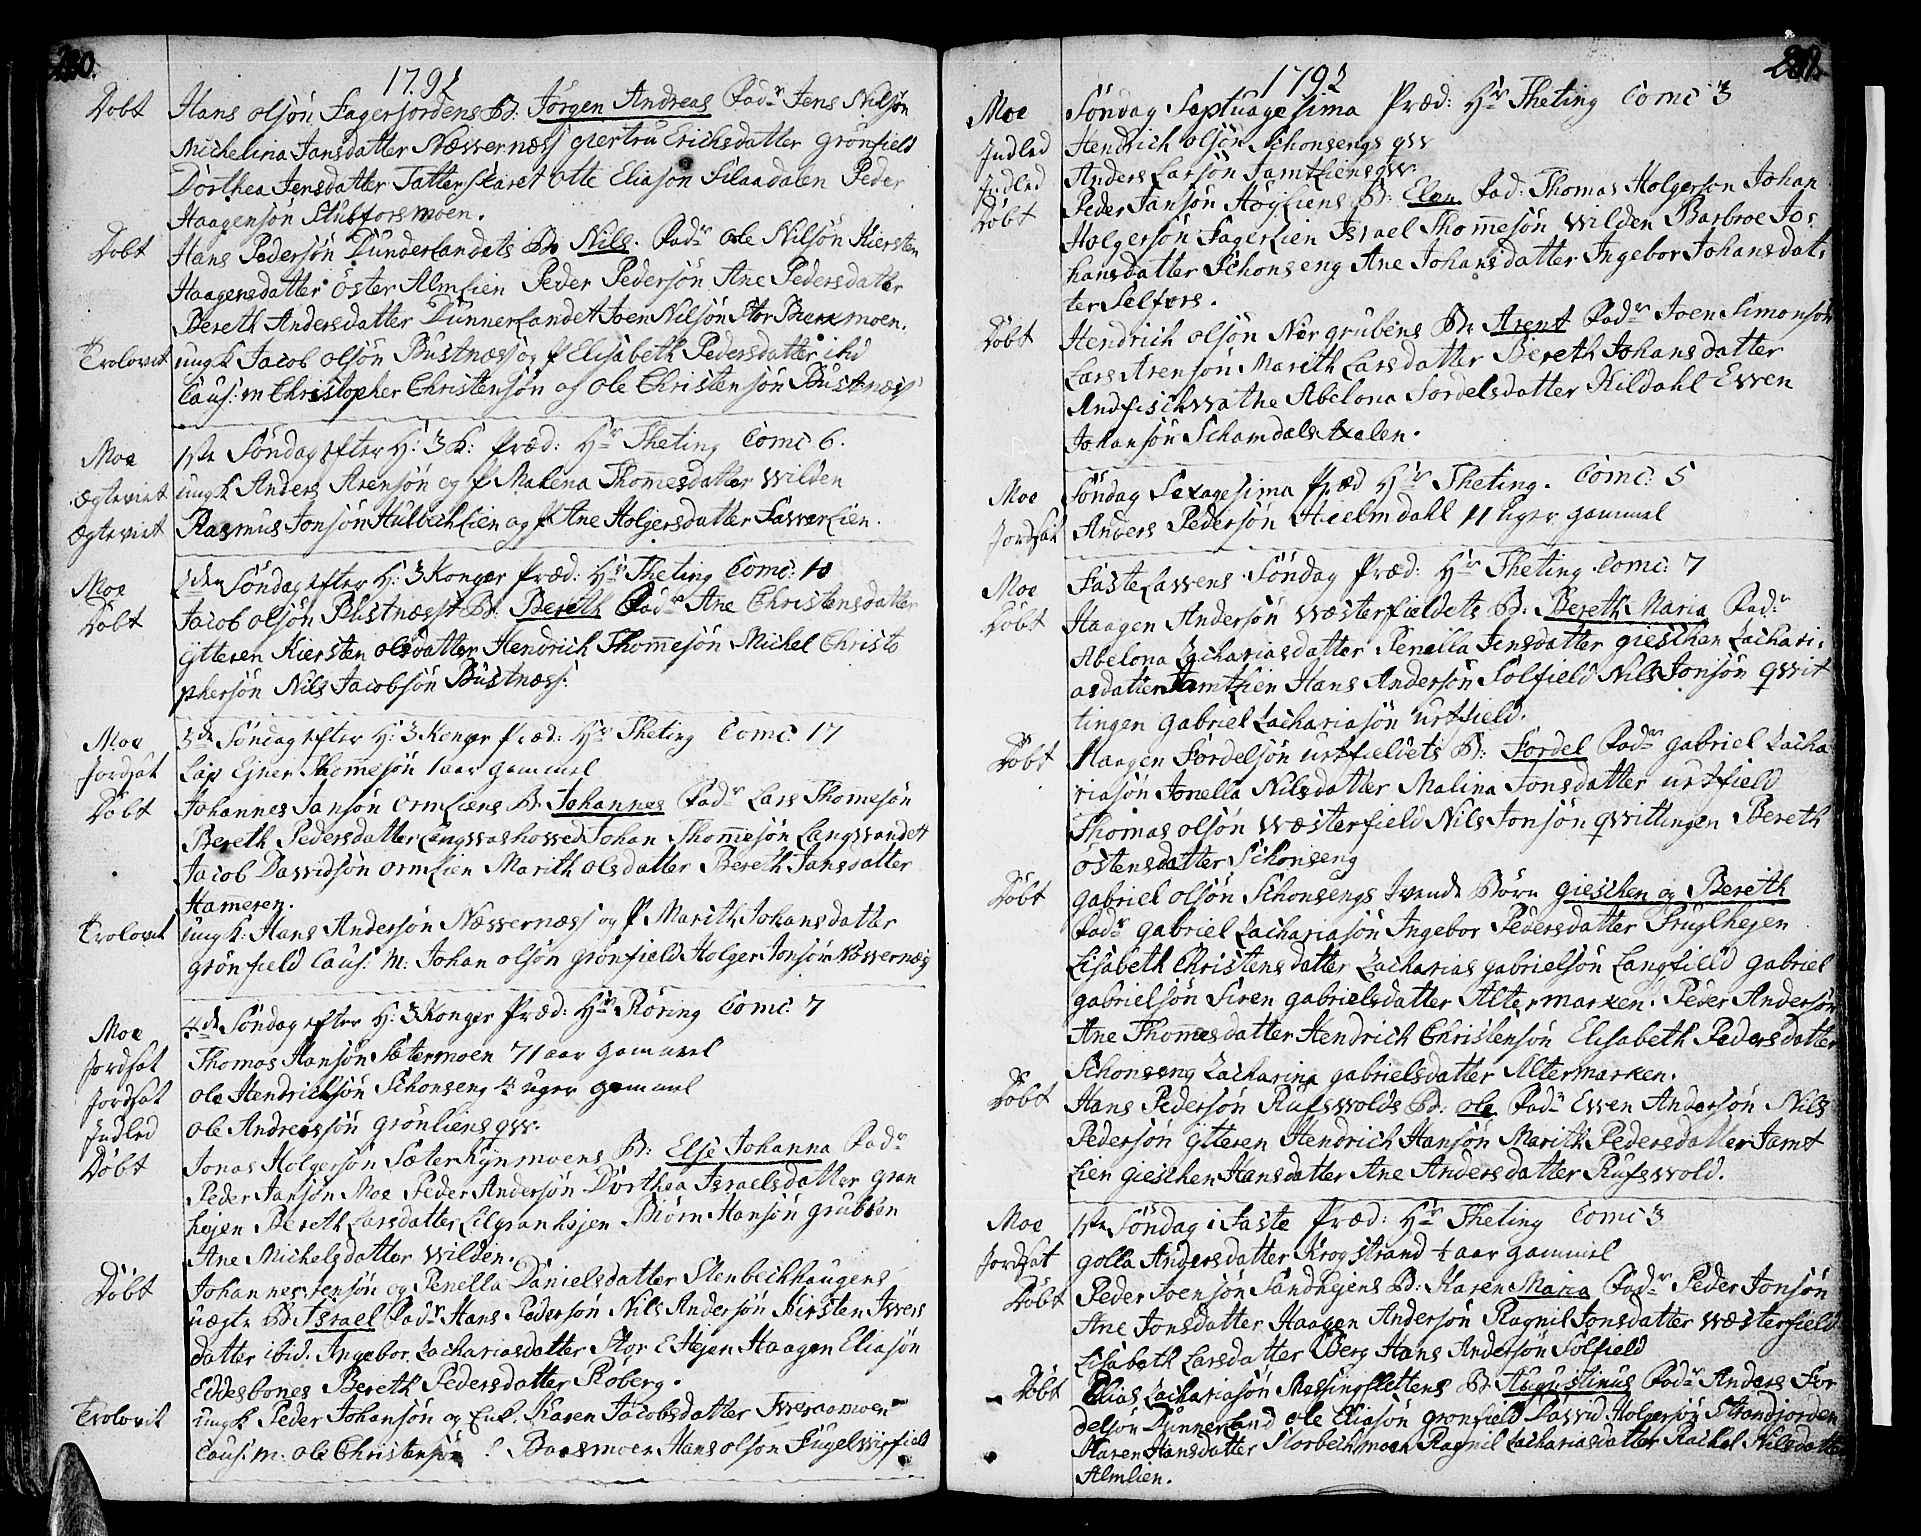 1792
Døbt Hans Olsøn Fagerjordens B: Jørgen Andreas Fadr Jens Nilsøn
Michelina Jansdatter Næsvernæss giertru Erichsdatter grønfield
Dorthea Jensdatter Tatterskaret Otte Eliasøn Silaadalen Peder
Haagensøn Stubforsmoen.
Døbt Hans Pedersøn Dunderlandets B: Nils. Fadr Ole Nilsøn Kiersten
Haagensdatter Øster Almlien Peder Pedersøn Ane Pedersdatter
Bereth Andersdatter Dunnerlandet Joen Nilsøn Stor moen.
Trolovet ungk Jacob Olsøn Bustnæss og P Elisabeth Pedersdatter ibid
Caus: m Christopher Christensøn og Ole Christensøn Bustnæss
Moe 1ste Søndag efter H: 3 K: Præd: Hr Theting Comc 6.
Ægteviet ungk Anders Arensøn og P Malena Thomesdatter Wilden
Ægteviet Rasmus Jonsøn Hulbechlien og P Ane Holgersdatter Fasverlien.
Moe 2den Søndag efter H: 3 Konger Præd: Hr Theting Comc: 10
Døbt Jacob Olsøn Bustnæss B: Bereth Fadr Ane Christensdatter
Ytteren Kiersten Olsdatter Hendrich Thomesøn Michel Christo
phersøn Nils Jacobsøn Bustnæss.
Moe 3de Søndag efter H: 3 Konger Præd: Hr Theting Comc: 17
Jordsat Lap Ejner Thomesøn 1 aar gammel
Døbt Johannes Jansøn Ormliens B. Johannes Fadr Lars Thomesøn
Bereth Pedersdatter Langvashoved Johan Thomesøn Langvandet
Jacob Davidsøn Ormlien Marith Olsdatter Bereth Jansdatter
Hameren.
Trolovet ungk: Hans Andersøn Næsvernæss og P Marith Johansdatter
grønfield Caus: m: Johan Olsøn grønfield Holger Jonsøn Næsvernæs
Moe 4de Søndag efter H: 3 Konger Præd: Hr Røring Comc: 7
Jordsat Thomas Hansøn Sætermoen 71 aar gammel
Jordsat Ole Hendrichsøn Schonseng 4 uger gammel
Indled Ole Andreasøn grønliens qv:
Døbt Jonas Holgersøn Sæterkynmoens B: Else Johanna Fadr
Peder Jansøn Moe Peder Andersøn Dorthea Israelsdatter gran
højen Bereth Larsdatter Lilgranhøjen Biørn Hansøn gruben
Ane Michelsdatter Wilden.
Døbt Johannes Jensøn og Penella Danielsdatter Stenbechhaugens
uægte B. Israel Fadr Hans Pedersøn Nils Andersøn Kirsten Ivers
datter ibid. Ingebor Zachariasdatter Stor E Hejen Haagen Eliasøn
Eddesbones Bereth Pedersdatter Røberg.
Trolovit ungk Peder Johansøn og Enk. Karen Jacobsdatter Tveraamoen
Caus: m: Ole Christensøn Baasmoen Hans Olsøn Fugelvigfield
1792
Moe Søndag Septuagesima Præd: Hr Theting Comc 3
Indled Hendrich Olsøn Schonsengs qv
Indled Anders Larsøn Jamtliens qv.
Døbt Peder Jansøn Høgliens B: Elen Fad: Thomas Holgersøn Johan
Holgersøn Fagerlien Israel Thomesøn Wilden Barbroe Jo:
hansdatter Schonseng Ane Johansdatter Ingebor Johansdat:
ter Selfors.
Døbt Hendrich Olsøn Nergrubens B: Arent Fadr Joen Simonsøn
Lars Arensøn Marith Larsdatter Bereth Johansdatter
Andfischvathe Abelona Fordelsdatter Hildahl Even
Johansøn Schamdals
Moe Søndag Sexagesima Præd Hr Theting. Comc: 5
Jordsat Anders Pedersøn Hielmdahl 11 uger gammel
Moe Fastelavens Søndag Præd: Hr Theting Comc: 7
Døbt Haagen Andersøn Wæsterfieldets B: Bereth Maria Fadr
Abelona Zachariasdatter Penella Jensdatter gieschen Zachari:
asdatter Jamtlien Hans Andersøn Solfield Nils Jonsøn qvit
tingen gabriel Zachariasøn Urtfield.
Døbt Haagen Fordelsøn Urtfieldets B: Fordel Fadr gabriel Zacha
riasøn Jonella Nilsdatter Malina Jonsdatter Urtfield
Thomas Olsøn Wæsterfield Nils Jonsøn qvittingen Bereth
Østensdatter Schonseng
Døbt gabriel Olsøn Schonsengs tvende Børn gieschen og Bereth
Fadr gabriel Zachariasøn Ingebor Pedersdatter Pruglhejen
Lisabeth Christensdatter Zacharias gabrielsøn Langfield gabriel
gabrielsøn Siren gabrielsdatter Altermarken. Peder Andersøn
Ane Thomesdatter Hendrich Christensøn Elisabeth Pedersdatter
Schonseng Zacharina gabrielsdatter Altermarken.
Døbt Hans Pedersøn Rufsvolds B: Ole Fadr Even Andersøn Nils
Pedersøn Ytteren Hendrich Hansøn Marith Pedersdatter Jamt
lien gieschen Hansdatter Ane Andersdatter Rufsvold.
Moe 1ste Søndag i Faste Præd: Hr Theting Comc 3
Jordsat golla Andersdatter Krogstrand 1 aar gammel
Døbt Peder Joensøn Sandhejens B: Karen Maria Fadr Peder Jonsøn
Ane Jonsdatter Haagen Andersøn Ragnil Jonsdatter Wæsterfield
Lisabeth Larsdatter Berg Hans Andersøn Solfield
Døbt Elias Zachariasøn Messingslettens B: Augustinus Fadr Anders For
delsøn Dunnerland Ole Eliasøn grønfield David Holgersøn Strandjorden
Karen Hansdatter Storbechmoen Ragnil Zachariasdatter Rachel Nilsdatter
Almlien.